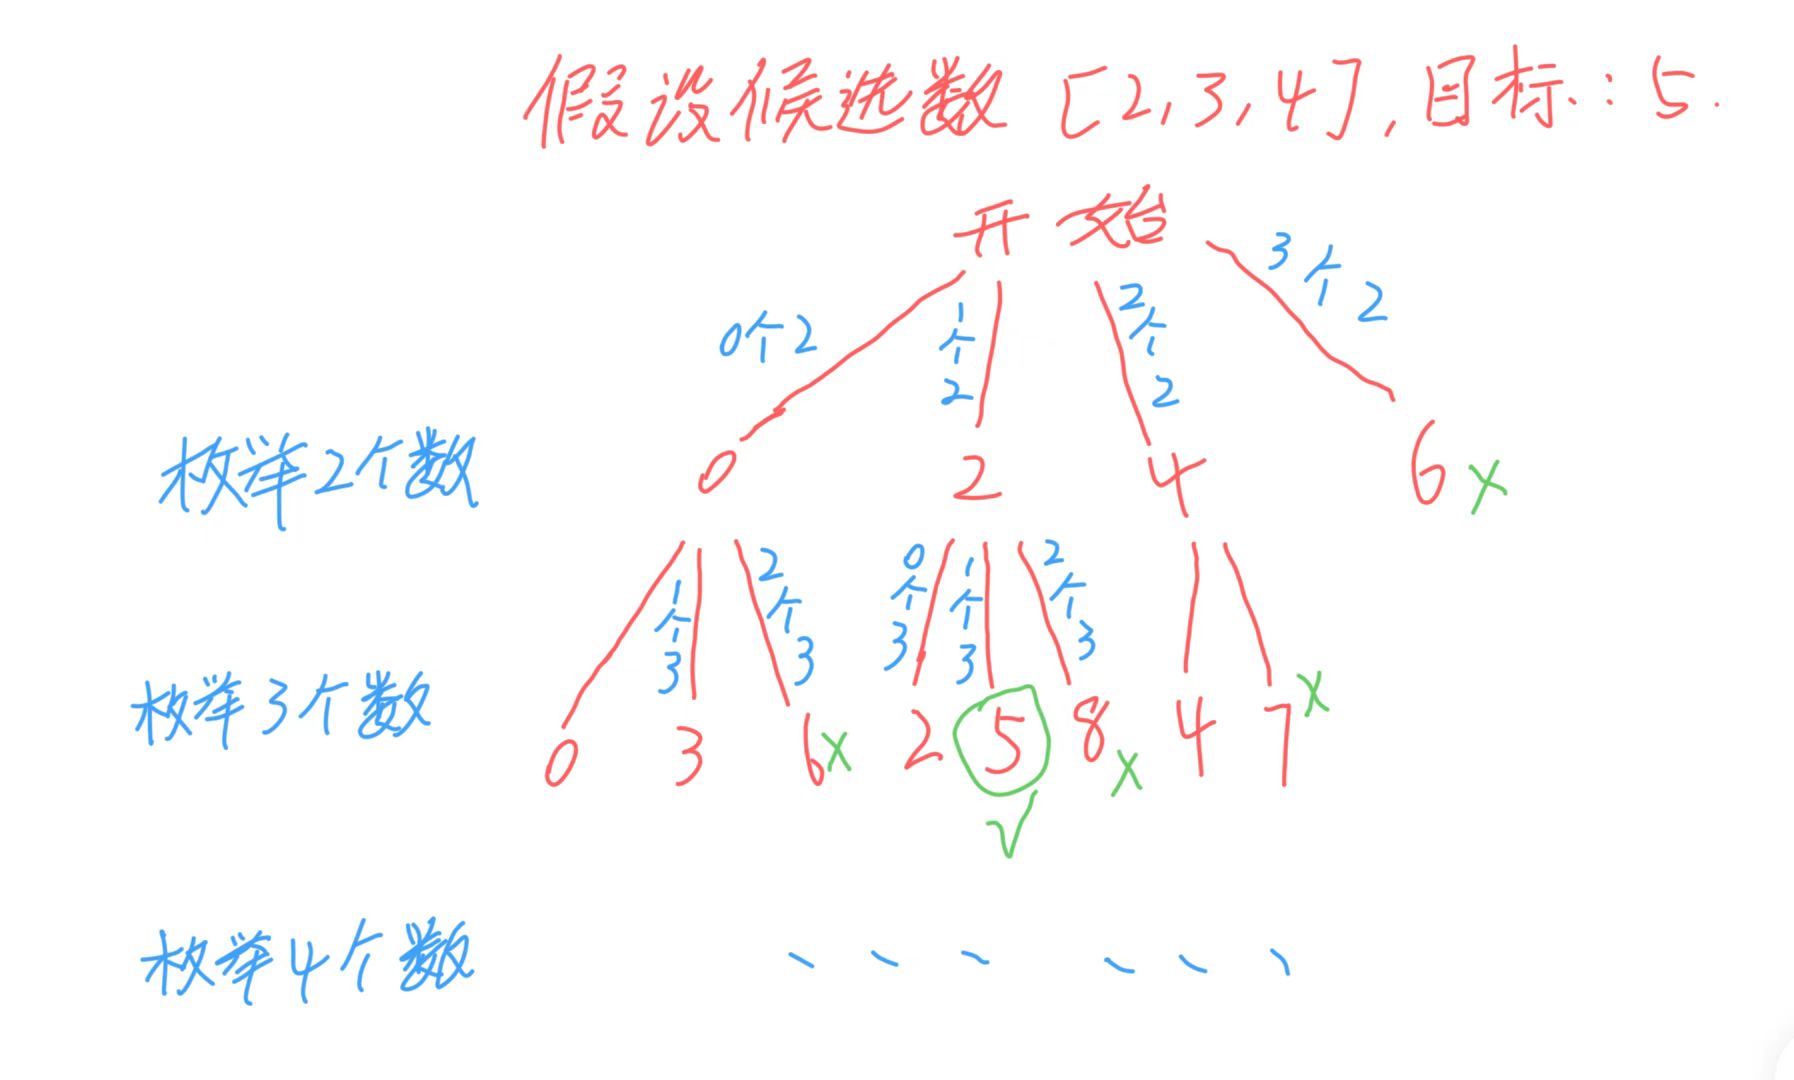 假设候选数 [2,3,4],目标:5.
开始
0个2 1个2 2个2 3个2
枚举2个数 0 2 4 6 x
1个3 2个3 0个3 1个3 2个3
枚举3个数 0 3 6x 2 5 8x 4 7x
√
枚举4个数 、、、、、、